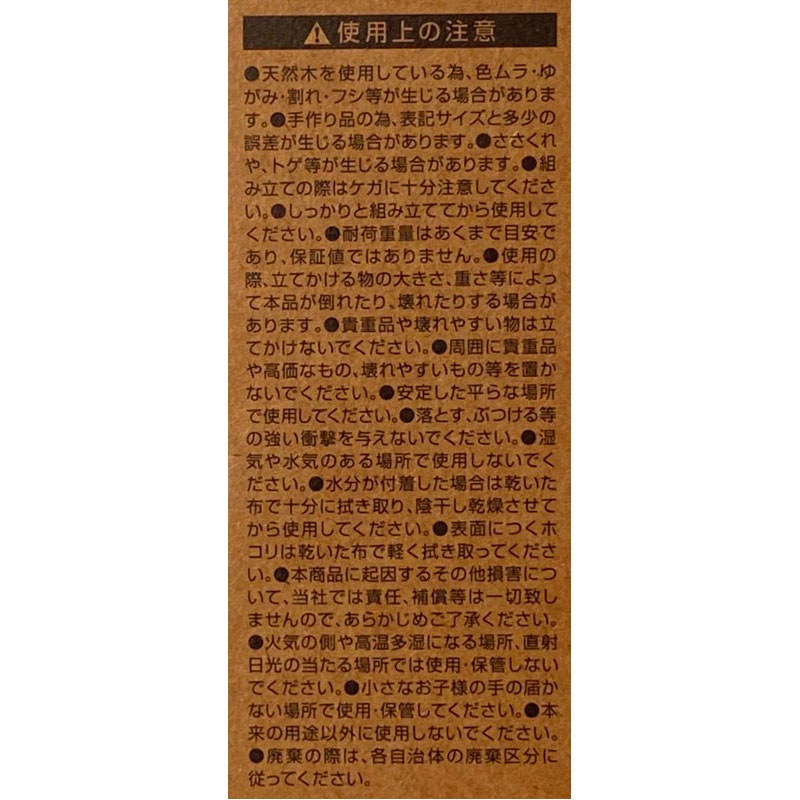 ⚠使用上の注意
●天然木を使用している為、色ムラ・ゆ
がみ・割れ・フシ等が生じる場合がありま
す。●手作り品の為、表記サイズと多少の
誤差が生じる場合があります。●ささくれ
や、トゲ等が生じる場合があります。●組
み立ての際はケガに十分注意してくださ
い。●しっかりと組み立ててから使用して
ください。●耐荷重量はあくまで目安で
あり、保証値ではありません。●使用の
際、立てかける物の大きさ、重さ等によっ
て本品が倒れたり、壊れたりする場合が
あります。●貴重品や壊れやすい物は立
てかけないでください。●周囲に貴重品
や高価なもの、壊れやすいもの等を置か
ないでください。●安定した平らな場所
で使用してください。●落とす、ぶつける等
の強い衝撃を与えないでください。●湿
気や水気のある場所で使用しないでく
ださい。●水分が付着した場合は乾いた
布で十分に拭き取り、陰干し乾燥させて
から使用してください。●表面につくホ
コリは乾いた布で軽く拭き取ってくださ
い。●本商品に起因するその他損害につ
いて、当社では責任、補償等は一切致し
ませんので、あらかじめご了承ください。
●火気の側や高温多湿になる場所、直射
日光の当たる場所では使用・保管しない
でください。●小さなお子様の手の届か
ない場所で使用・保管してください。●本
来の用途以外に使用しないでください。
●廃棄の際は、各自治体の廃棄区分に
従ってください。